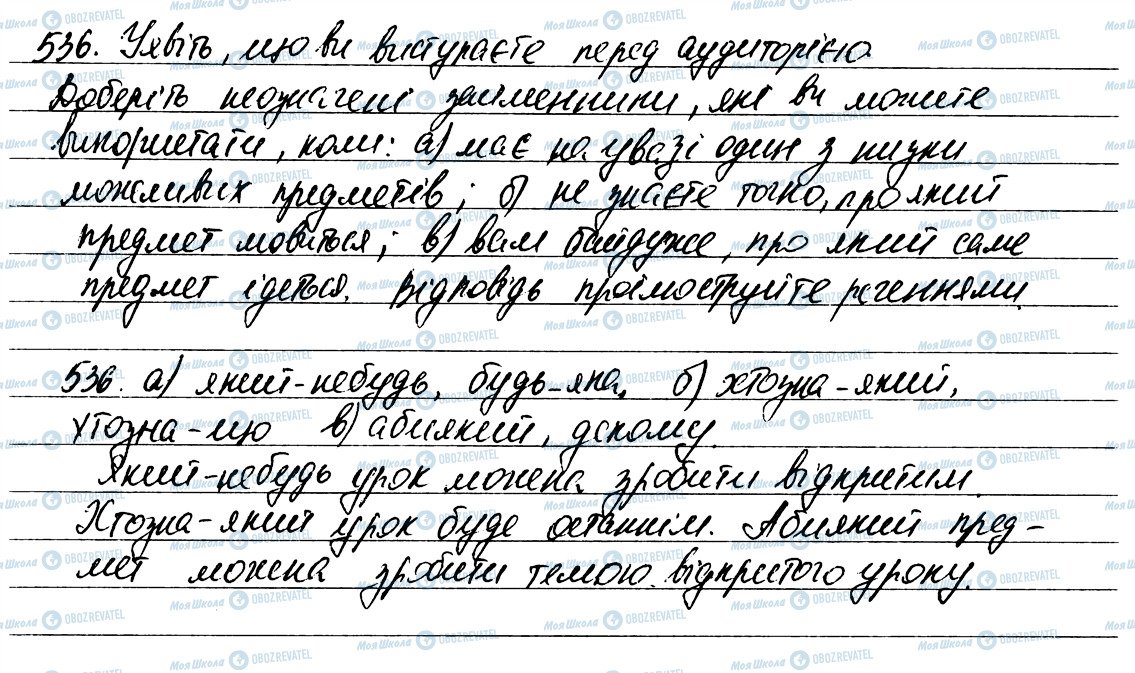 536. Уявіть, що ви виступаєте перед аудиторією.
Доберіть неозначені займенники, які ви можете
використати, коли: а) має на увазі один з низки
можливих предметів; б) не знаєте точно, про який
предмет мовиться; в) вам байдуже, про який саме
предмет ідеться. Відповідь проілюструйте реченнями.
536. а) який-небудь, будь-яка. б) хтозна-який,
хтозна-що в) абиякий, декому.
Який-небудь урок можена зробити відкритим.
Хтозна-який урок буде останнім. Абиякий пред-
мет можена зробити темою відкритого уроку.